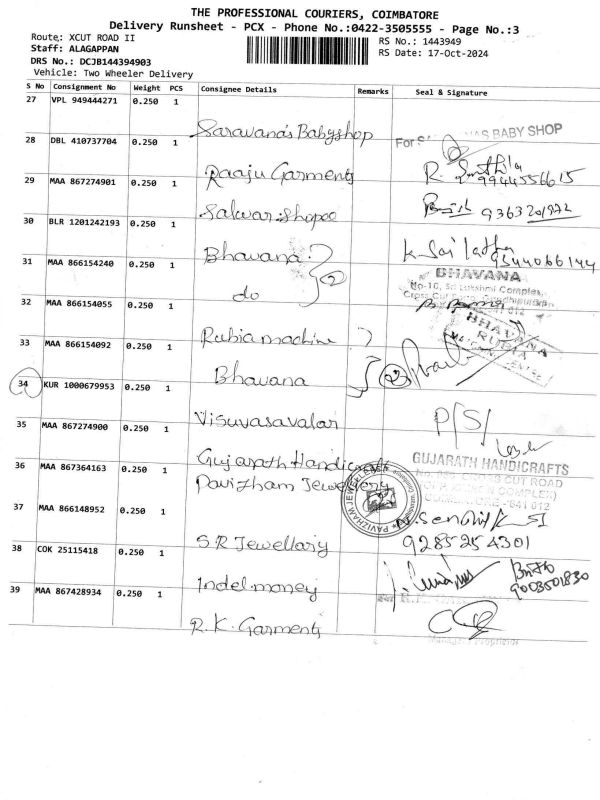 THE PROFESSIONAL COURIERS, COIMBATORE
Delivery Runsheet - PCX - Phone No.:0422-3505555 - Page No.:3
Route: XCUT ROAD II
RS No.: 1443949
Staff: ALAGAPPAN
RS Date: 17-Oct-2024
DRS No.: DCJB144394903
Vehicle: Two Wheeler Delivery
S No Consignment No Weight PCS Consignee Details Remarks Seal & Signature
27 VPL 949444271 0.250 1
Saravana's Babyshop
For BABY SHOP
28 DBL 410737704 0.250 1
Raaju Garments
R.
9944556615
29 MAA 867274901 0.250 1
Salwar Shopee
30 BLR 1201242193 0.250 1
Bhavana
K. Sai Latha
9544066144
31 MAA 866154240 0.250 1
do
2
BHAVANA
No-10, Sri Lakshmi Complex,
32 MAA 866154055 0.250 1
Rubia machine
BHAVANA
RUBIA
33 MAA 866154092 0.250 1
Bhavana
34 KUR 1000679953 0.250 1
Visuvasavalar
P/S/
35 MAA 867274900 0.250 1
Gujarath Handicraft
GUJARATH HANDICRAFTS
CUT ROAD
COMPLEX)
641 012
36 MAA 867364163 0.250 1
Pavizham Jewellery
PAVIZHAM JEWELLERS
37 MAA 866148952 0.250 1
S.R Jewellary
9285254301
38 COK 25115418 0.250 1
Indelmoney
9003501830
39 MAA 867428934 0.250 1
R.K. Garments